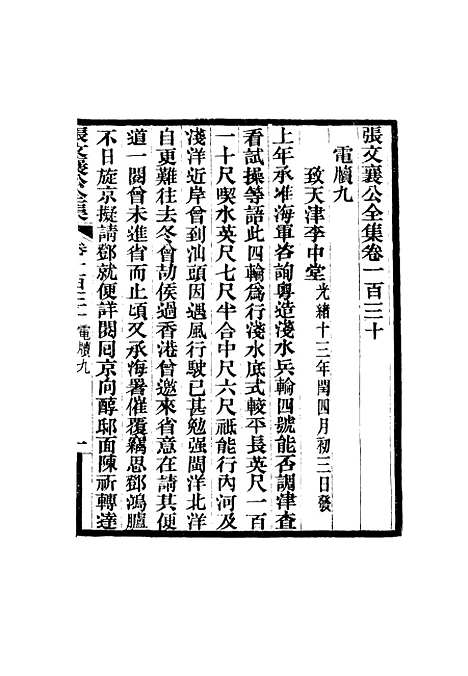 張文襄公全集卷一百三十
電牘九
致天津李中堂光緒十三年閏四月初三日發
上年承准海軍咨詢粵造淺水兵輪四號能否調津查
看試操等語此四輪爲行淺水底式較平長英尺一百
一十尺喫水英尺七尺半合中尺六尺祇能行內河及
淺洋近岸曾到汕頭因遇風行駛已甚勉强閩洋北洋
自更難往去冬曾劼侯過香港曾邀來省意在請其便
道一閱曾未進省而止頃又承海署催覆竊思鄧鴻臚
不日旋京擬請鄧就便詳閱囘京向醇邸面陳祈轉達
張文襄公全集 卷一百三十 電牘九 一